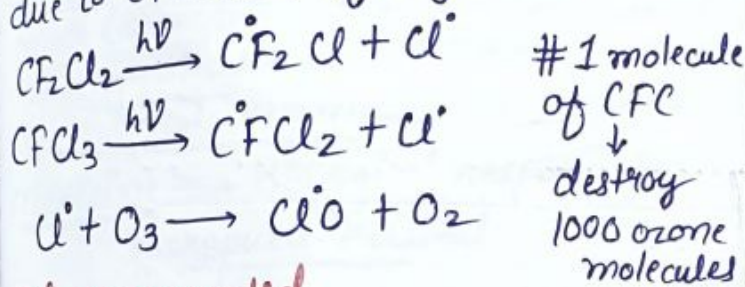 due to
CF₂Cl₂ —hν→ C̊F₂Cl + Cl•
CFCl₃ —hν→ C̊FCl₂ + Cl•
Cl• + O₃ ⟶ Cl•O + O₂
#1 molecule
of CFC
↓
destroy
1000 ozone
molecules